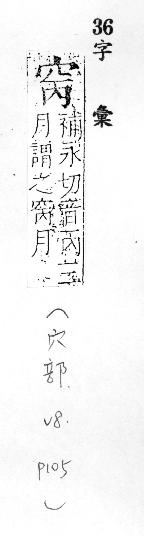 36字彙
窉
補永切音丙三
月謂之窉月
（穴部
v8.
p105
）